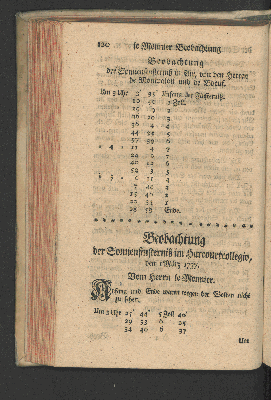 120 le Monnier Beobachtung
Beobachtung
der Sonnenfinsterniß in Air, von den Herren
de Montvalon und de Boeuf.
Um 3 Uhr 2' 35" Anfang der Finsterniß.
10 50 1 Zoll.
19 50 2
26 20 3
36 4 4
44 25 5
57 59 6
4 11 4 7
24 20 7
40 12 6
52 30 5
5 0 11 4
7 44 3
15 40 2
22 54 1
28 59 Ende.
Beobachtung
der Sonnenfinsterniß im Harcourtcollegio,
den 1 März 1737.
Vom Herrn le Monnier.
Anfang und Ende waren wegen der Wolken nicht
zu sehen.
Um 3 Uhr 25' 44" 5 Zoll 40'
29 33 6 05
34 40 6 37
Um